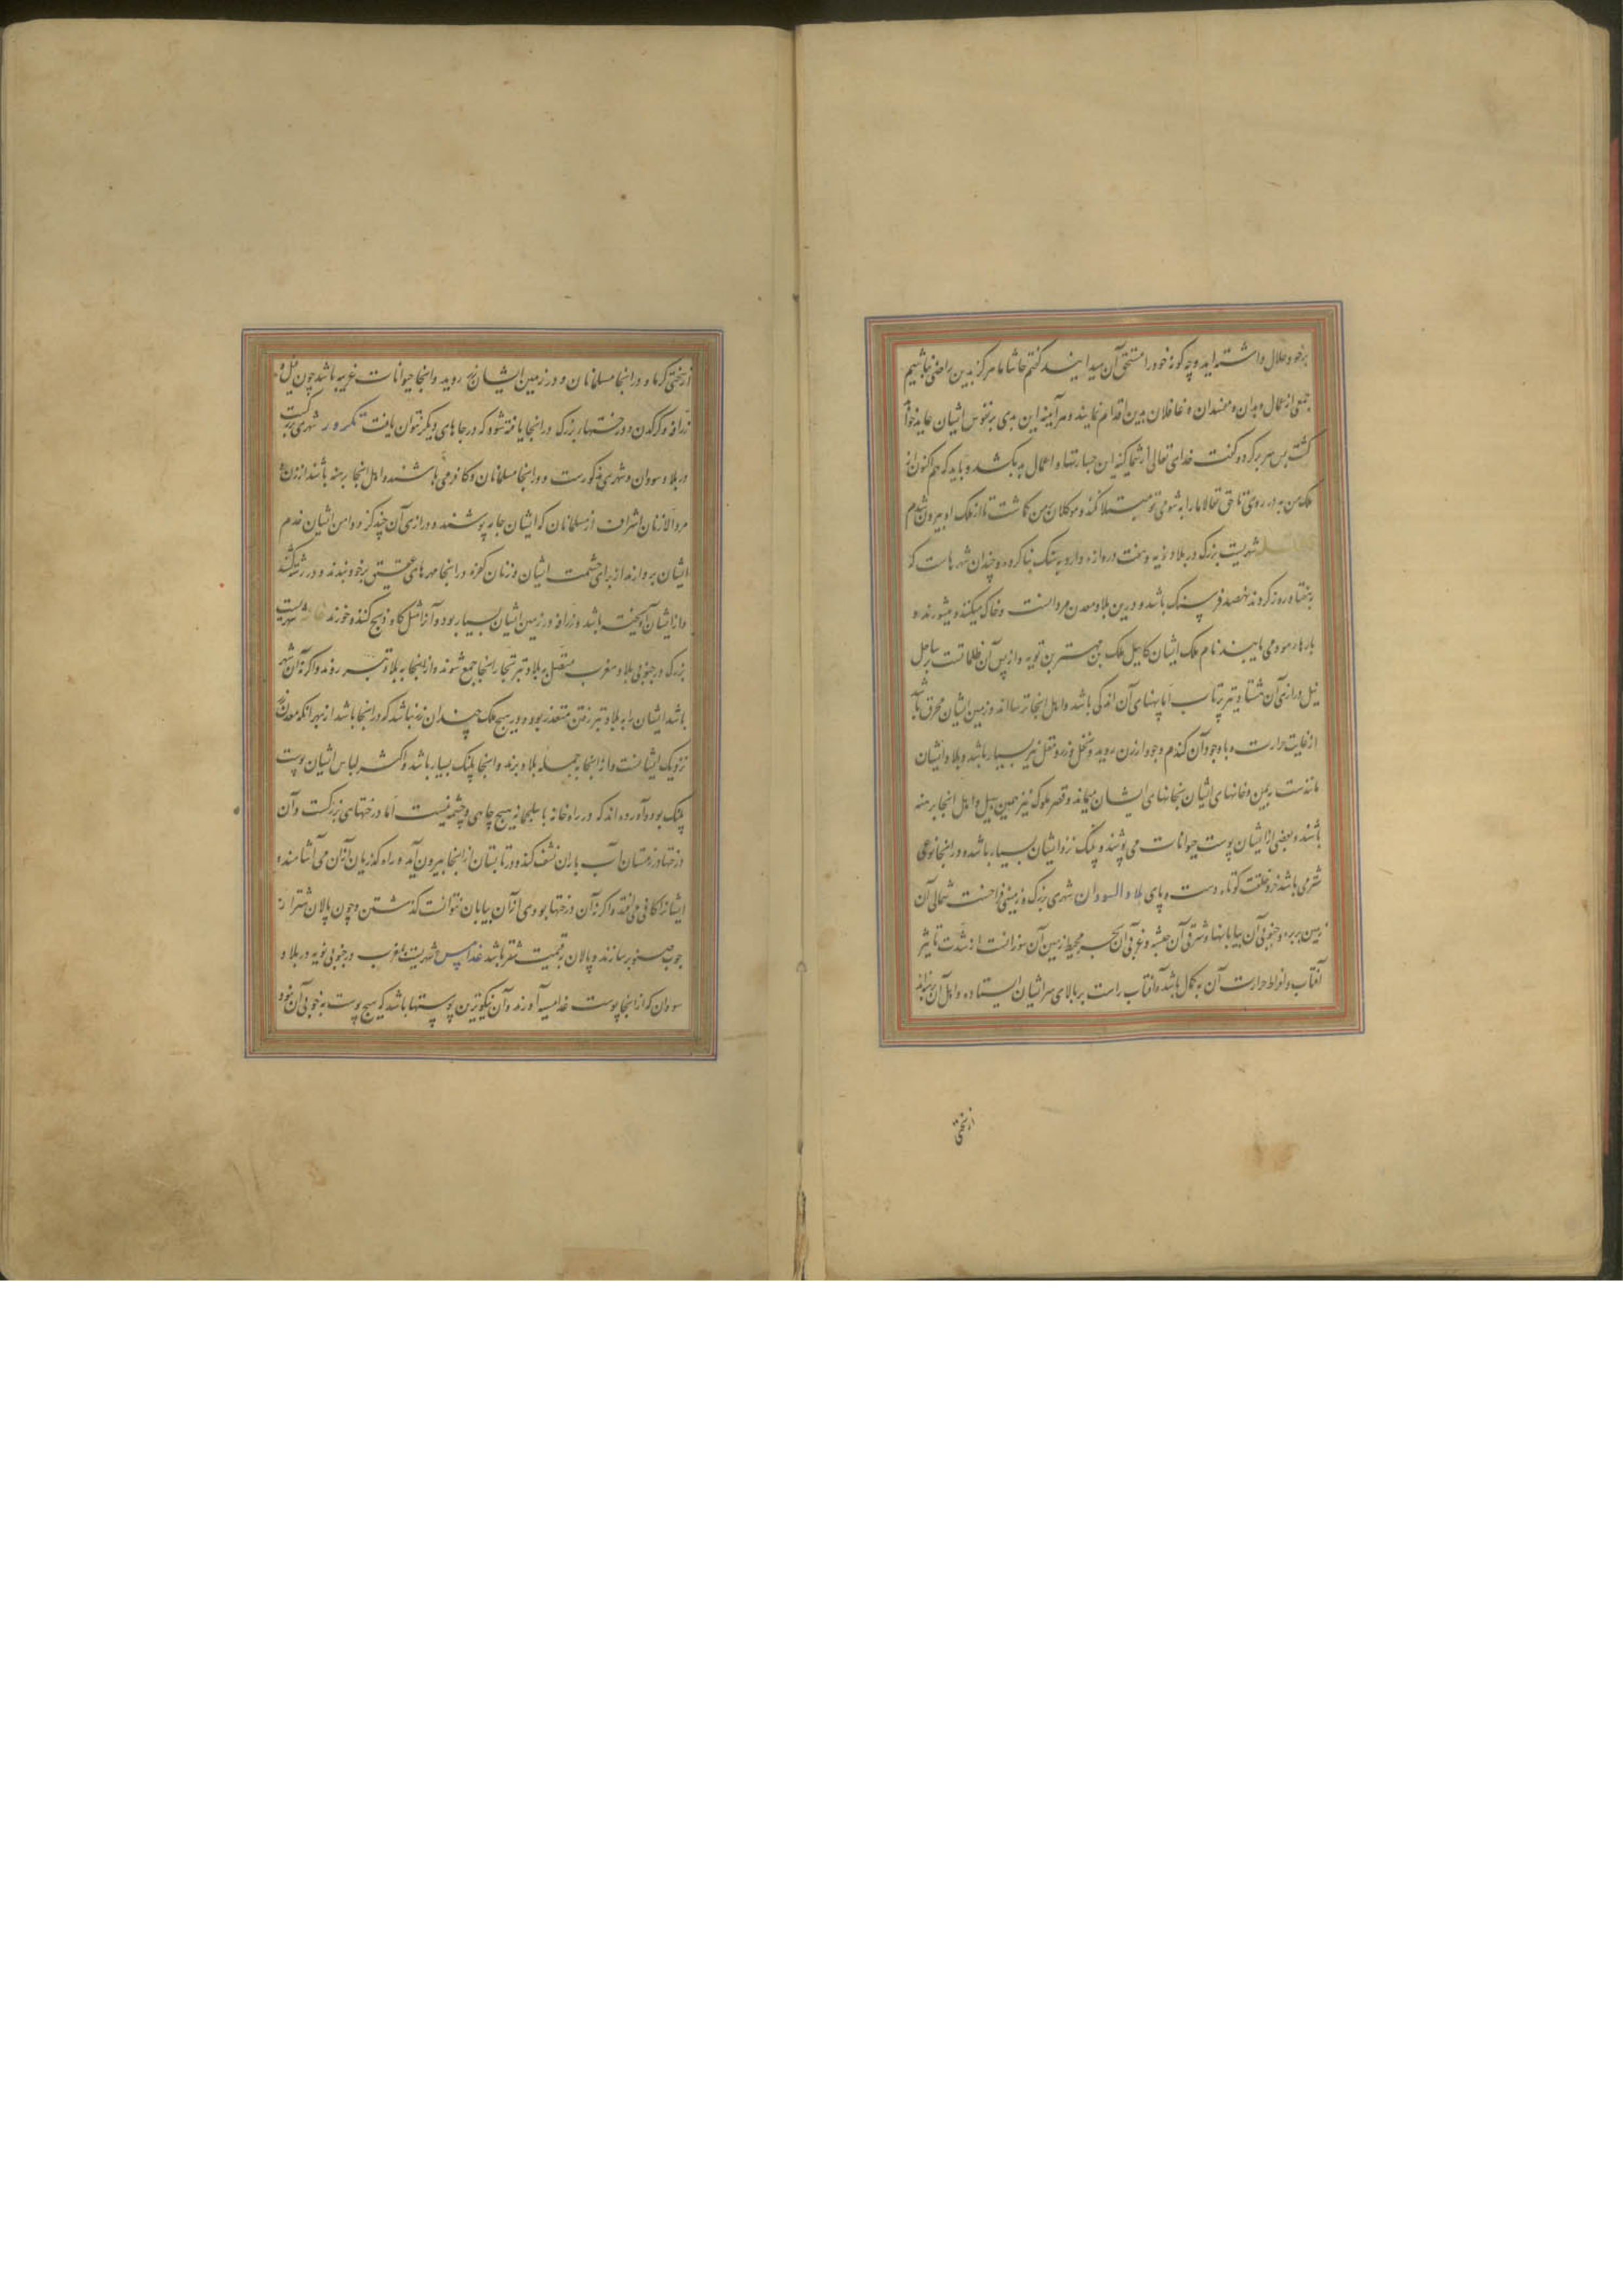 برخود حلال داشته‌اید و چه کونه خود را مستحق آن میدانید کفتم حاشا ما هرکز بدین راضی نباشیم
جمعی از عمال و بدان و مفسدان و غافلان بدین اقدام نمایند و هرآینه این بدی بر نفوس ایشان عاید خواهد
کشت پس سر برکرد و کفت خدای تعالی از شما کینه این جسارتها و اعمال بد بکشد و باید که هم کنون از
ملک من بدر روی تا حق تعالا ما را به شومی تو مبتلا نکند و موکلان بمن کماشت تا از ملک او بیرون شدم
شهریست بزرک در بلاد نوبه و هفت دروازه دارد به سنک بنا کرده و چندان شهرهاست که
به هفتاد روز کردند نهصد فرسنک باشد و درین بلاد معدن مروانست و خاک میکنند و میشورند و
پارها می یابند نام ملک ایشان کابیل ملک بهترین نوبه و از پس آن ظلماتست بر ساحل
نیل درازی آن هشتاد تیر پرتاب اما پهنای آن اندکی باشد و اهل انجا ترسااند و زمین ایشان محرق باشد
از غایت حرارت و با وجود آن کندم و جو و ارزن روید و نخل و زرد و مقل نیز بسیار باشد و بلاد ایشان
مانندست بیمن و خانهای ایشان بخانهای ایشان میماند و قصر ملوک نیز همین سبیل و اهل انجا برهنه
باشند و بعضی از ایشان پوست حیوانات می پوشند و پلنک نزد ایشان بسیار باشد و در اینجا نوعی
شتر می باشد خرد خلقت کوتاه دست و پای بلاد السودان شهری بزرک و زمینی فراخست شمالی آن
زمین بربر و جنوبی آن بیابانها و شرقی آن حبشه و غربی آن بحر محیط زمین آن سوزانست از شدت تاثیر
آفتاب و افراط حرارت آن به کمال باشد و آفتاب راست بر بالای سر ایشان ایستاده و اهل آن برهنه‌اند
از سختی
از سختی کرما و در اینجا مسلمانان و در زمین ایشان زر روید و انجا حیوانات غریبه باشد چون فیل و
زرافه و کرکدن و درختهاء بزرک در اینجا یافته شود که در جاهای دیکر نتوان یافت تکرور شهری بزرکست
در بلاد سودان و شهری مذکورست و در اینجا مسلمانان و کافر می باشند و اهل انجا برهنه باشند از زن و
مرد الا زنان اشراف از مسلمانان که ایشان جامه پوشند و درازی آن چند کز و دامن ایشان خدم
ایشان بردارند از برای حشمت ایشان و زنان کفره در اینجا مهرهای عقیق برخود بندند و در رشته کشند
و از ایشان آویخته باشد و زرافه در زمین ایشان بسیار بود و آنرا مثل کاو ذبح کنند و خورند شهریست
بزرک در جنوبی بلاد مغرب متصل به بلاد تبر تجار اینجا جمع شوند و از اینجا به بلاد تبر روند و اکر نه آن شهر
باشد ایشان را به بلاد تبر رفتن متعذر بود و در هیچ ملک چندان زر نباشد که در اینجا باشد از بهر آنکه معدن زر
نزدیک ایشانست و از اینجا به جمله بلاد برند و اینجا پلنک بسیار باشد و اکثر لباس ایشان پوست
پلنک بود و آورده‌اند که در راه غانه تا سلجمانه هیچ چاهی و چشمه نیست اما درختهای بزرکست و آن
درختها در زمستان آب باران نشف کند و در تابستان از اینجا بیرون آید و راه کذریان از آن می آشامند و
ایشانرا کافی می افتد و اکر نه آن درختها بودی از آن بیابان نتوانست کذشتن و چون پالان شتر از
چوب صنوبر سازند و پالان به قیمت شتر باشد غدامس شهریست به مغرب در جنوبی نوبه در بلاد
سودان که از انجا پوست غدامسیه آورند و آن نیکوترین پوستها باشد که هیچ پوست به خوبی آن نبود